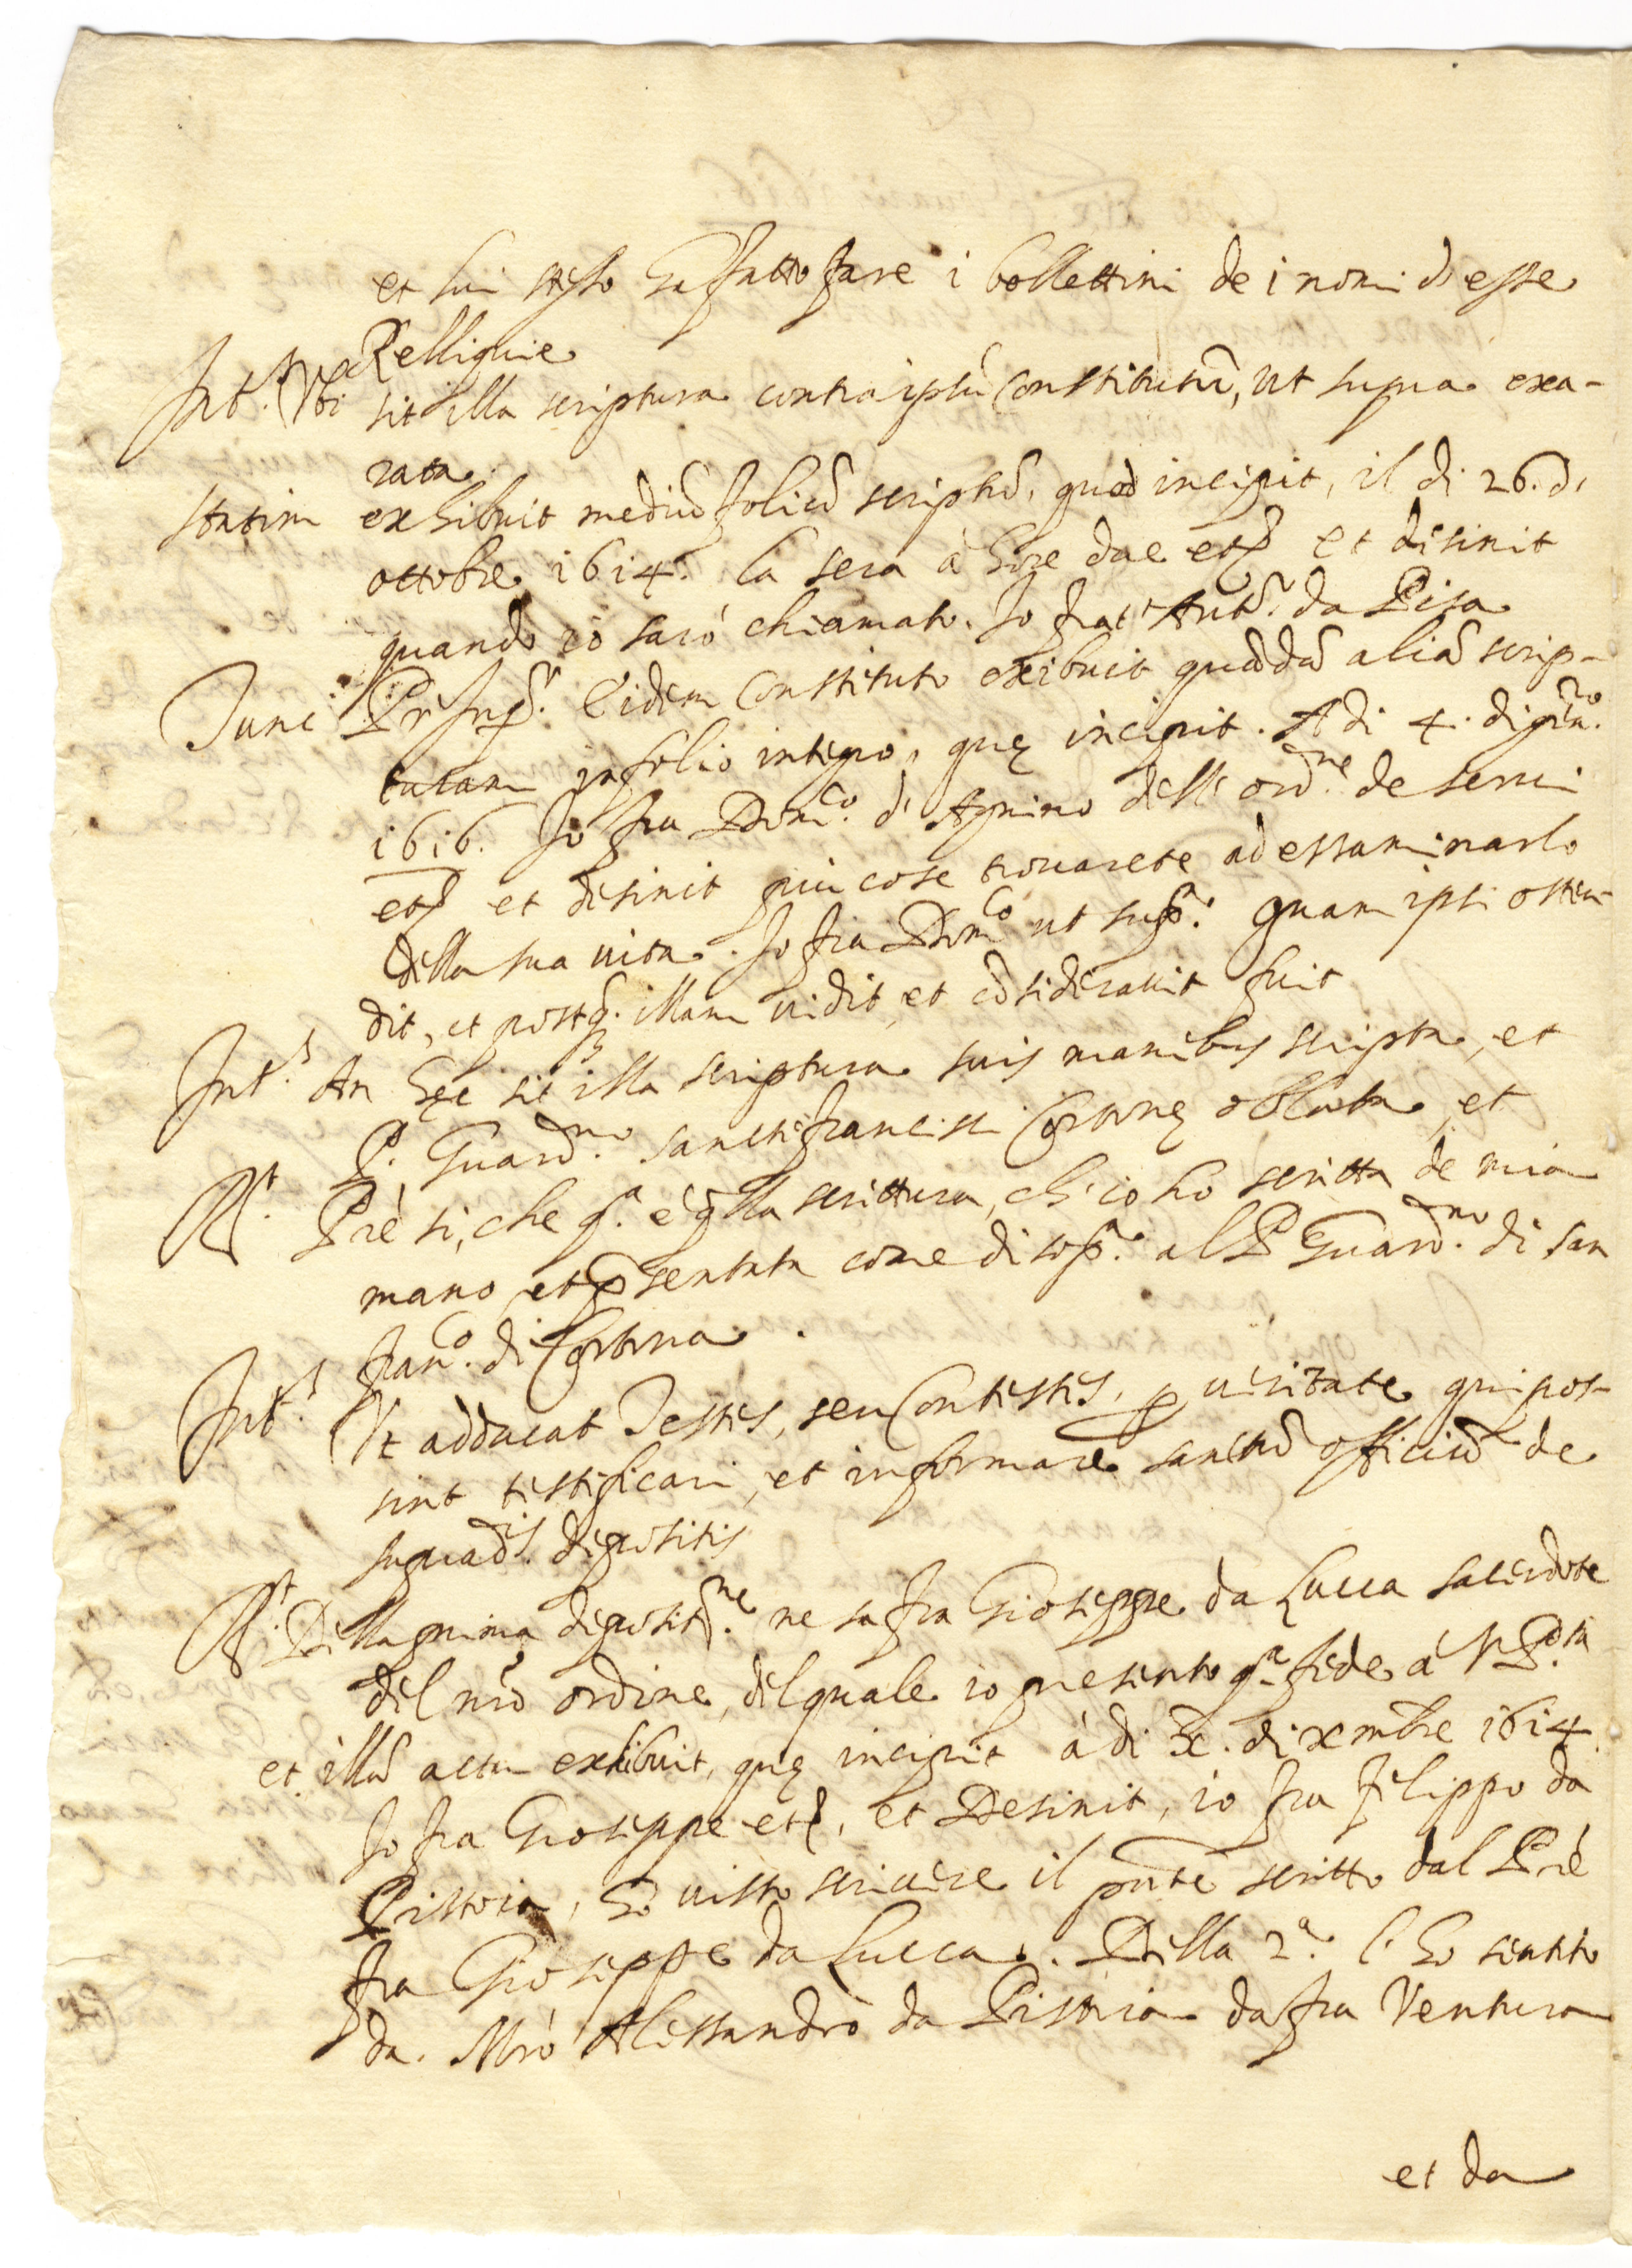 et lui stesso ha fatto fare i bollettini de i nomi di esse
Relliquie
Int.s Ubi sit illa scriptura contra ipsũ Constitutũ, ut supra exa-
rata.
statim exhibuit mediũ foliũ scriptũ, quod incipit, il di 26. di
ottobre 1614. la sera à hore due etc et desinit
quando io sarò chiamato. Io frat' Ant.o da Pisa
Tunc Pr Inq.r eidem Constituto exibuit quãdã aliã scrip-
turam in folio integro, quę incipit. A di 4. di gen.ro
1616. Io fra Dom.co di Agnino dell' ord.ne de servi
etc et desinit piu cose trovarete ad essaminarlo
della sua vita. Io fra Dom.co ut sup.a quam ipsi osten-
dit, et postq. illam vidit, et cõsideravit fuit
Int.s An hęc sit illa scriptura suis manibus scripta, et
P. Guard.no sancti francisci Cortonę oblata, et
R.t Prè si, che q.a è q̃lla scrittura, ch'io hò scritta de mia
mano et p̃sentata come di sop.a al P Guard.no di san
fran.co di Cortona.
Int.s Ut adducat Testes, seu Contestes, p veritate qui pos-
sint testificari, et informare sanctũ officiũ de
suprad.is depositis
R.t Della prima deposit.ne ne sa fra Gioseppe da Lucca sacerdote
del nrõ ordine, del quale io presento q.a fede à V.P.tà
et illã actu exhibuit, quę incipit à di X. di xmbre 1614
Io fra Gioseppe etc, et Desinit, io fra Filippo da
Pistoia, hò visto scrivere il pñte scritto dal Prè
fra Gioseppe da Lucca. Della 2.a l'ho sentito
da. Mrò Alessandro da Pistoia da fra Ventura
et da